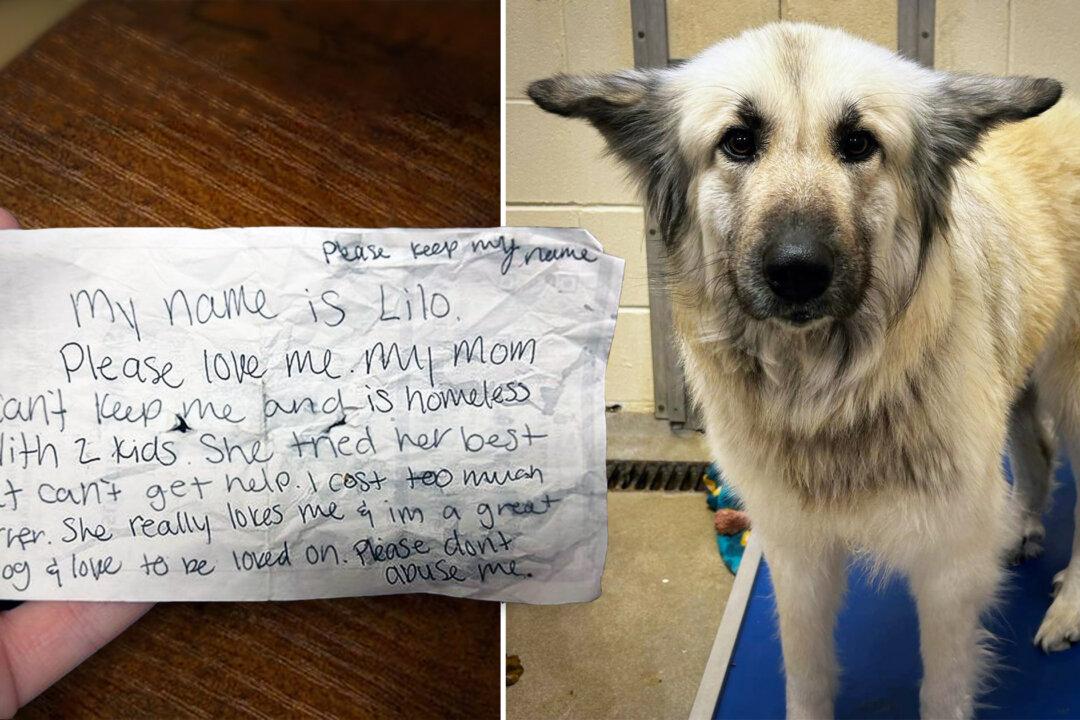 Please keep my name
My name is Lilo.
Please love me. My mom
can't keep me and is homeless
with 2 kids. She tried her best
can't get help. I cost too much
She really loves me & im a great
& love to be loved on. Please don't
abuse me.